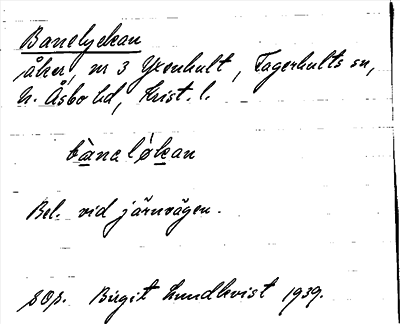 Banelyckan
åker, nr 3 Yxenhult, Fagerhults sn,
N. Åsbo hd, Krist. l.
bànalỳkan
Bel. vid järnvägen.
SOp. Birgit Lundkvist 1939.